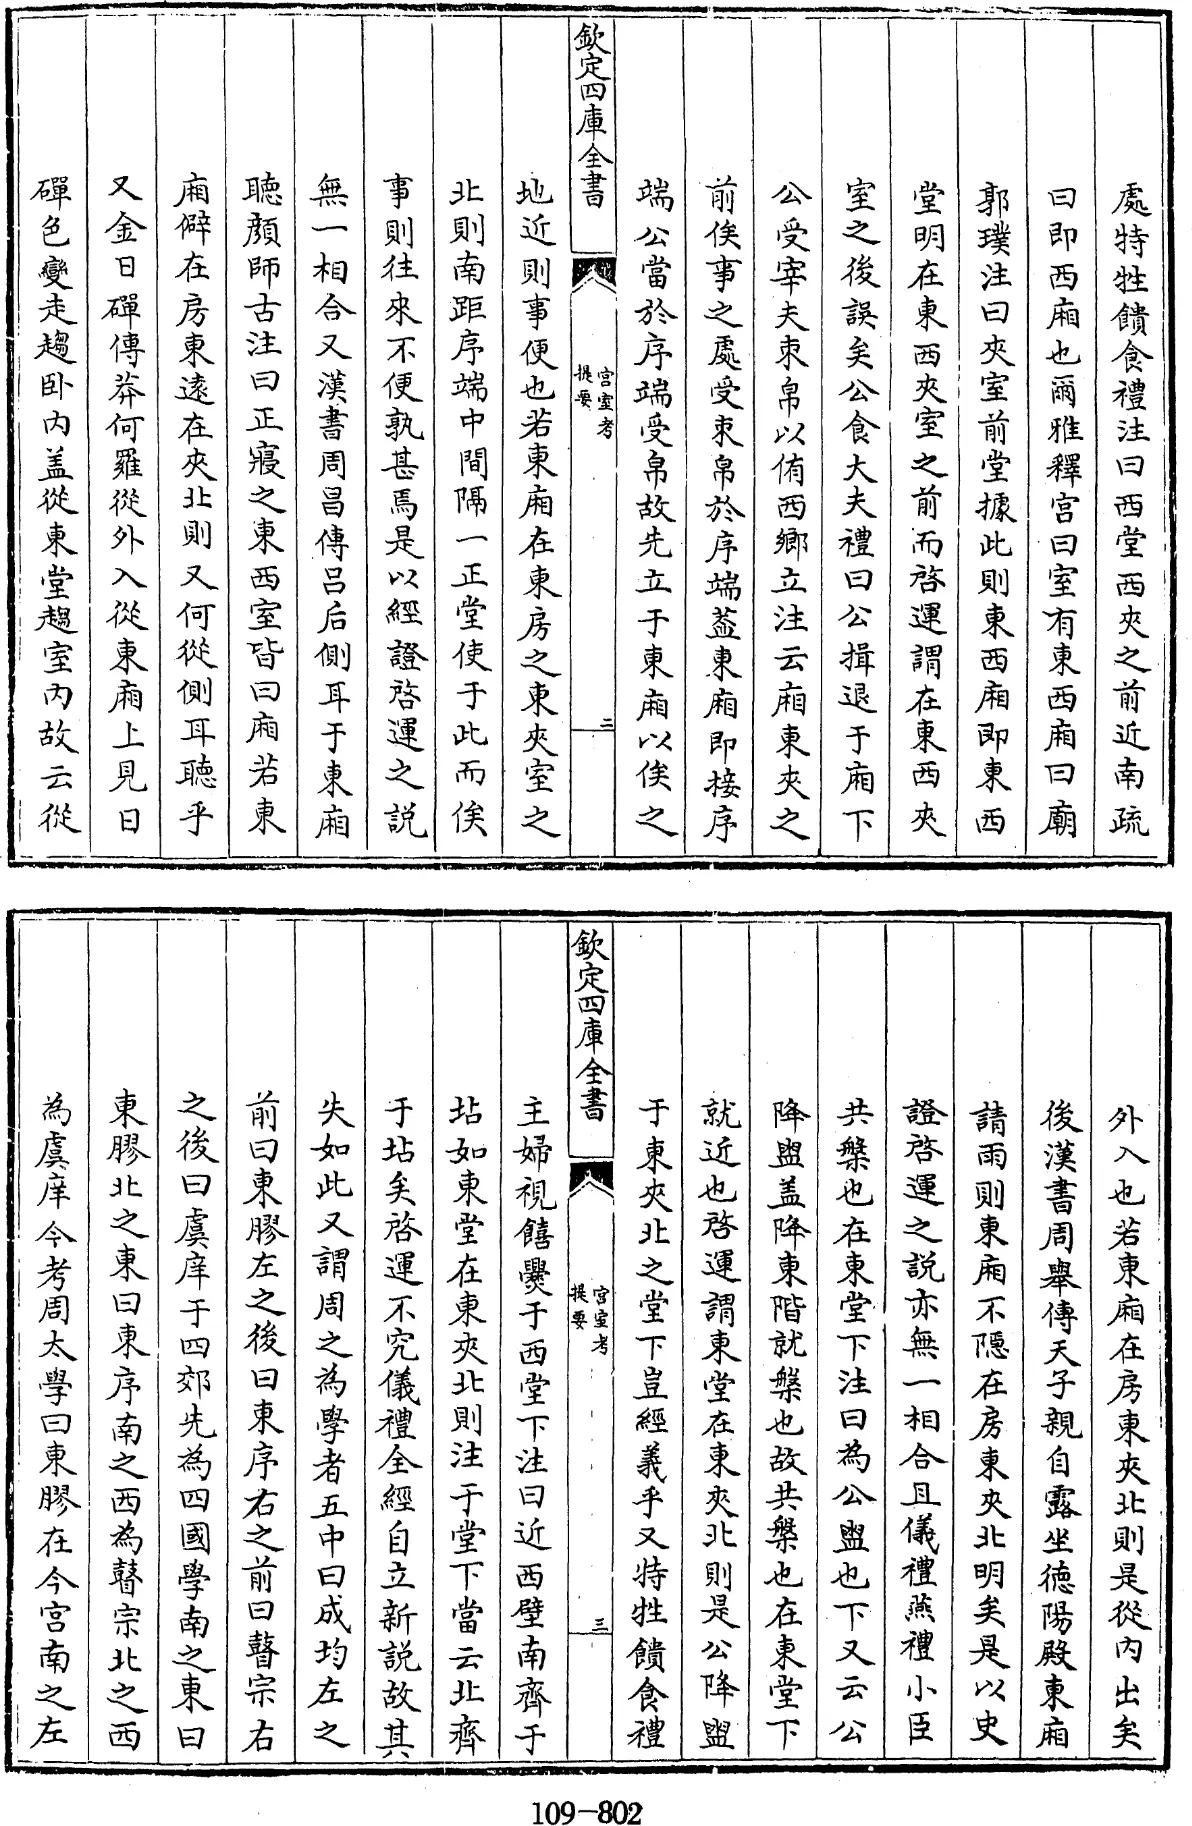 處特牲饋食禮注曰西堂西夾之前近南疏
曰即西廂也爾雅釋宫曰室有東西廂曰廟
郭璞注曰夾室前堂據此則東西廂即東西
堂明在東西夾室之前而啓運謂在東西夾
室之後誤矣公食大夫禮曰公揖退于廂下
公受宰夫束帛以侑西鄉立注云廂東夾之
前俟事之處受束帛於序端葢東廂即接序
端公當於序端受帛故先立于東廂以俟之
欽定四庫全書
宫室考
提要
二
地近則事便也若東廂在東房之東夾室之
北則南距序端中間隔一正堂使于此而俟
事則往來不便孰甚焉是以經證啓運之説
無一相合又漢書周昌傳吕后側耳于東廂
聽顔師古注曰正寢之東西室皆曰廂若東
廂僻在房東遠在夾北則又何從側耳聽乎
又金日磾傳莽何羅從外入從東廂上見日
磾色變走趨卧内盖從東堂趨室内故云從
外入也若東廂在房東夾北則是從内出矣
後漢書周舉傳天子親自露坐德陽殿東廂
請雨則東廂不隱在房東夾北明矣是以史
證啓運之説亦無一相合且儀禮燕禮小臣
共槃也在東堂下注曰為公盥也下又云公
降盥盖降東階就槃也故共槃也在東堂下
就近也啓運謂東堂在東夾北則是公降盥
于東夾北之堂下豈經義乎又特牲饋食禮
欽定四庫全書
宫室考
提要
三
主婦視饎爨于西堂下注曰近西壁南齊于
坫如東堂在東夾北則注于堂下當云北齊
于坫矣啓運不究儀禮全經自立新説故其
失如此又謂周之為學者五中曰成均左之
前曰東膠左之後曰東序右之前曰瞽宗右
之後曰虞庠于四郊先為四國學南之東曰
東膠北之東曰東序南之西為瞽宗北之西
為虞庠今考周太學曰東膠在今宫南之左
109-802